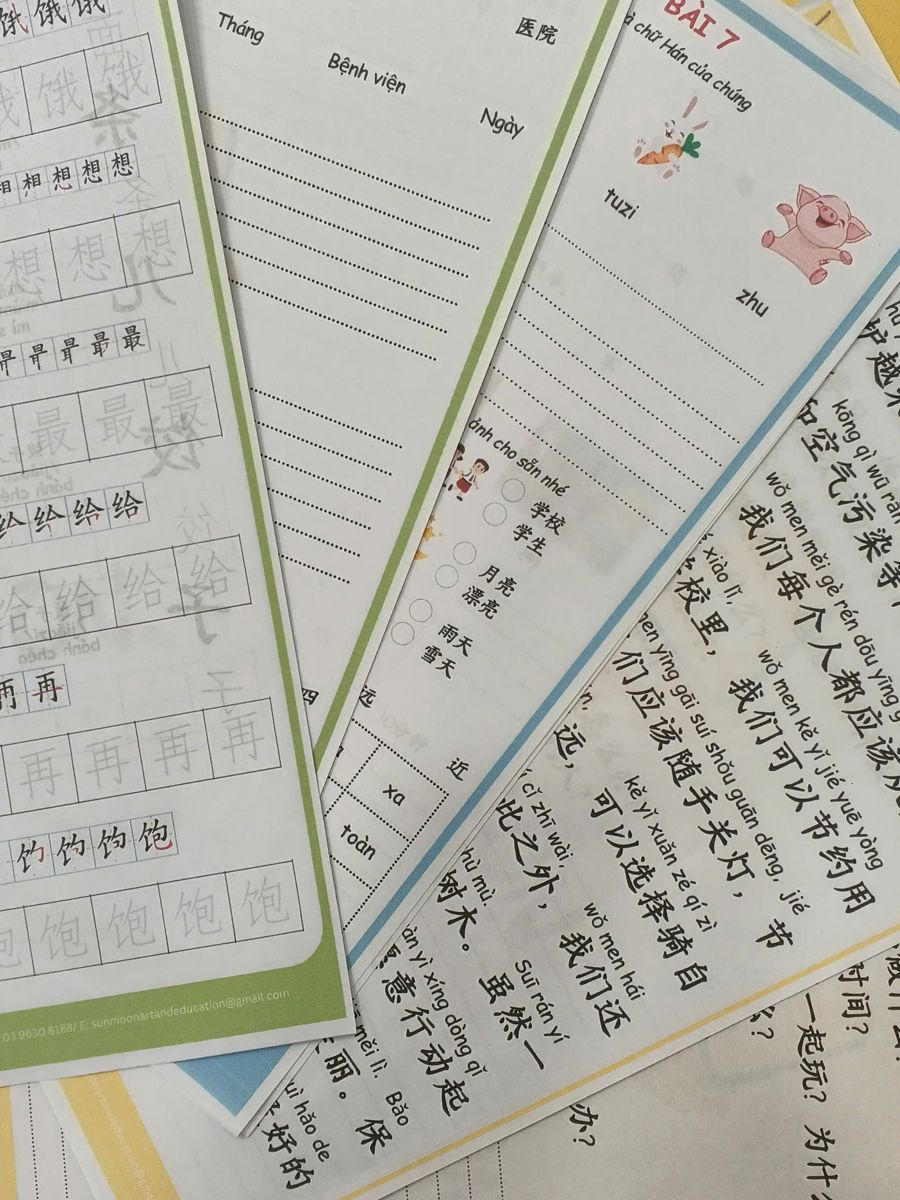 饿 饿 饿
饿 饿
相 相 想 想 想
想 想 想
最 最
最 最 最
给 给 给 给
给 给 给 给
再 再
再 再 再 再
饱
饱 饱 饱 饱 饱
03 9630 8188/ E: sunmoonartandeducation@gmail.com
Tháng
医院
Bệnh viện
Ngày
BÀI 7
chữ Hán của chúng
tuzi
zhu
ảnh cho sẵn nhé
学校
学生
月亮
漂亮
雨天
雪天
远
近
xa
toàn
kōng qì wū rǎn
和空气污染等
wǒ men měi gè rén dōu yīng g
我们每个人都应该
xiào lǐ,
校里，
wǒ men kě yǐ jié yuē yòng
我们可以节约用
men yīng gāi suí shǒu guān dēng, jié
们应该随手关灯，节
远，
kě yǐ xuǎn zé qí zì
可以选择骑自
cǐ zhī wài,
此之外，
wǒ men hái
我们还
hù mù,
树木。
Suī rán yí
虽然一
àn yì xíng dòng qǐ
意行动起
měi lì. Bǎo
丽。保
uì hǎo de
好的
办？
时间？
一起玩？为什